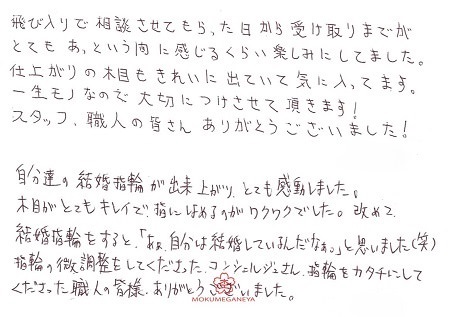 飛び入りで相談させてもらった日から受け取りまでが
とてもあっという間に感じるくらい楽しみにしてました。
仕上がりの木目もきれいに出ていて気に入ってます。
一生モノなので大切につけさせて頂きます!
スタッフ、職人の皆さんありがとうございました!
自分達の結婚指輪が出来上がり、とても感動しました。
木目がとてもキレイで、指にはめるのがワクワクでした。改めて、
結婚指輪をすると、「あぁ、自分は結婚しているんだなぁ。」と思いました(笑)
指輪の微調整をしてくださった、コンシェルジュさん、指輪をカタチにして
くださった職人の皆様、ありがとうございました。
MOKUMEGANEYA